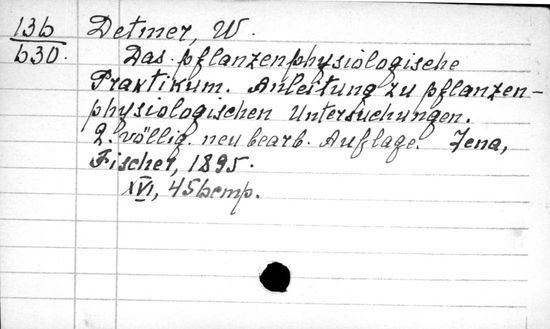 136 Detmer, W.
630. Das pflanzenphysiologische
Praktikum. Anleitung zu pflanzen-
physiologischen Untersuchungen.
2. völlig. neu bearb. Auflage. Jena,
Fischer, 1895.
XVI, 456 стр.